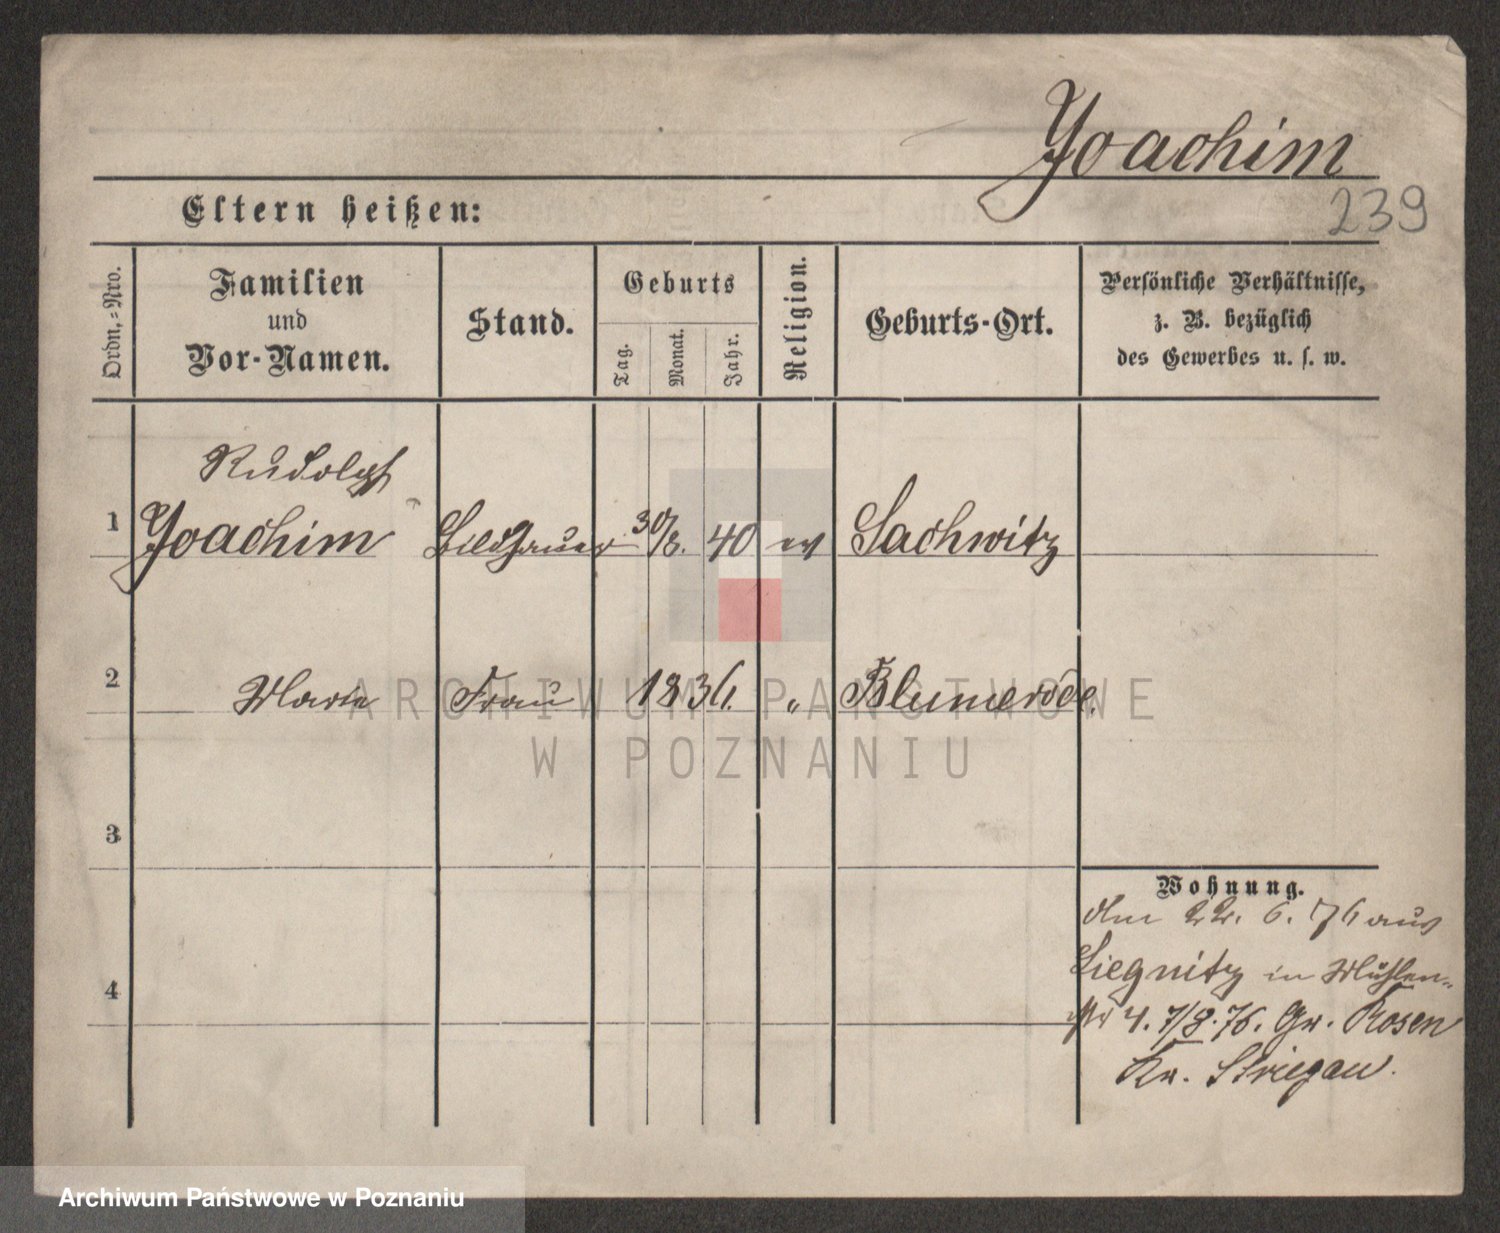 Joachim
239
Eltern heißen:
Ordn.=Nro.
Familien
und
Vor-Namen.
Stand.
Geburts
Tag.
Monat.
Jahr.
Religion.
Geburts-Ort.
Persönliche Verhältnisse,
z. B. bezüglich
des Gewerbes u. s. w.
Rudolph
1 Joachim Bildhauer 30/8. 40 ev Sachwitz
2 Marie Frau 1836. " Blumerode.
3
4
Wohnung.
den 22. 6. 76 aus
Liegnitz in Mühlen-
str 4. 7/8. 76. Gr. Rosen
Kr. Striegau.
ARCHIWUM PAŃSTWOWE
W POZNANIU
Archiwum Państwowe w Poznaniu